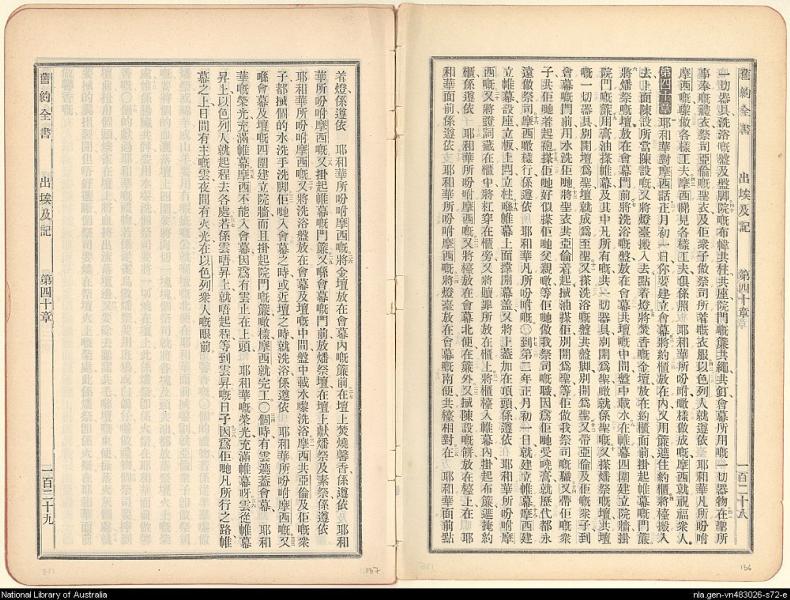 舊約全書 出埃及記 第四十章 一百二十八
一切器具洗浴嘅盤及盤脚院嘅布幃共柱共座院門嘅簾共繩共釘會幕所用嘅一切器物在聖所
事奉嘅禮衣祭司亞倫嘅聖衣及佢衆子做祭司所著嘅衣服以色列人就遵依 耶和華凡所吩咐
摩西嘅嚟做各樣工夫摩西睇見各樣工夫俱係照 耶和華所吩咐噉樣做成嘅摩西就祝福衆人
第四十章 耶和華對摩西話正月初一日你要建立會幕將約櫃放在內又用簾遮住約櫃將檯搬入
去上面陳設所當陳設嘅又將燈臺搬入去點着燈將焚香嘅金壇放在約櫃面前掛起帷幕嘅門簾
將燔祭嘅壇放在會幕門前將洗浴嘅盤放在會幕共壇嘅中間盤中載水在帷幕四圍建立院牆掛
院門嘅簾用膏油搽帷幕及其中凡所有嘅共一切器具別開爲聖嚫就係聖嘅又搽燔祭嘅壇共壇
嘅一切器具別開壇爲聖壇就成爲至聖又搽洗浴嘅盤共盤脚別開爲聖又帶亞倫及佢衆子到
會幕嘅門前用水洗佢哋將聖衣共亞倫着起搣油搽佢別開爲聖等佢做我祭司嘅職又帶佢嘅衆
子共佢哋着起袍搽佢哋好似搽佢哋父親噉等佢哋做我祭司嘅職因爲佢哋受嘵膏就歷代都永
遠做祭司摩西噉樣行係遵依 耶和華凡所吩咐嘅○到第二年正月初一日就建立帷幕摩西建
立帷幕設座立板上閂立柱喺帷幕上面撑開幕蓋又將上蓋加在頂頭係遵依 耶和華所吩咐摩
西嘅又將證詞藏在櫃中將杠穿在櫃旁又將贖罪所放在櫃上將櫃檯入帷幕內掛起布簾遮掩約
櫃係遵依 耶和華所吩咐摩西嘅又將檯放在會幕北便在簾外又搣陳設嘅餅放在檯上在 耶
和華面前係遵依 耶和華所吩咐摩西嘅將燈臺放在會幕嘅南便共檯相對在 耶和華面前點
着燈係遵依 耶和華所吩咐摩西嘅將金壇放在會幕內嘅簾前在壇上焚燒馨香係遵依 耶和
華所吩咐摩西嘅又掛起帷幕嘅門簾又喺會幕嘅門前放燔祭壇在壇上獻燔祭及素祭係遵依
耶和華所吩咐摩西嘅又將洗浴盤放在會幕及壇嘅中間盤中載水嚟洗浴摩西共亞倫及佢嘅衆
子都搣個的水洗手洗脚佢哋入會幕之時或近壇之時就洗浴係遵依 耶和華所吩咐摩西嘅又
喺會幕及壇嘅四圍建立院牆而且掛起院門嘅簾噉樣摩西就完工○個時有雲遮蓋會幕 耶和
華嘅榮光充滿帷幕摩西不能入會幕因爲有雲正在上頭 耶和華嘅榮光充滿帷幕呀雲從帷幕
昇上以色列人就起程去各處若係雲唔昇上就唔起程等到雲昇嘅日子因爲佢哋凡所行之路帷
幕之上日間有 主嘅雲夜間有火光在以色列衆人嘅眼前
舊約全書 出埃及記 第四十章 一百二十九
136
137
National Library of Australia
nla.gen-vn483026-s72-e